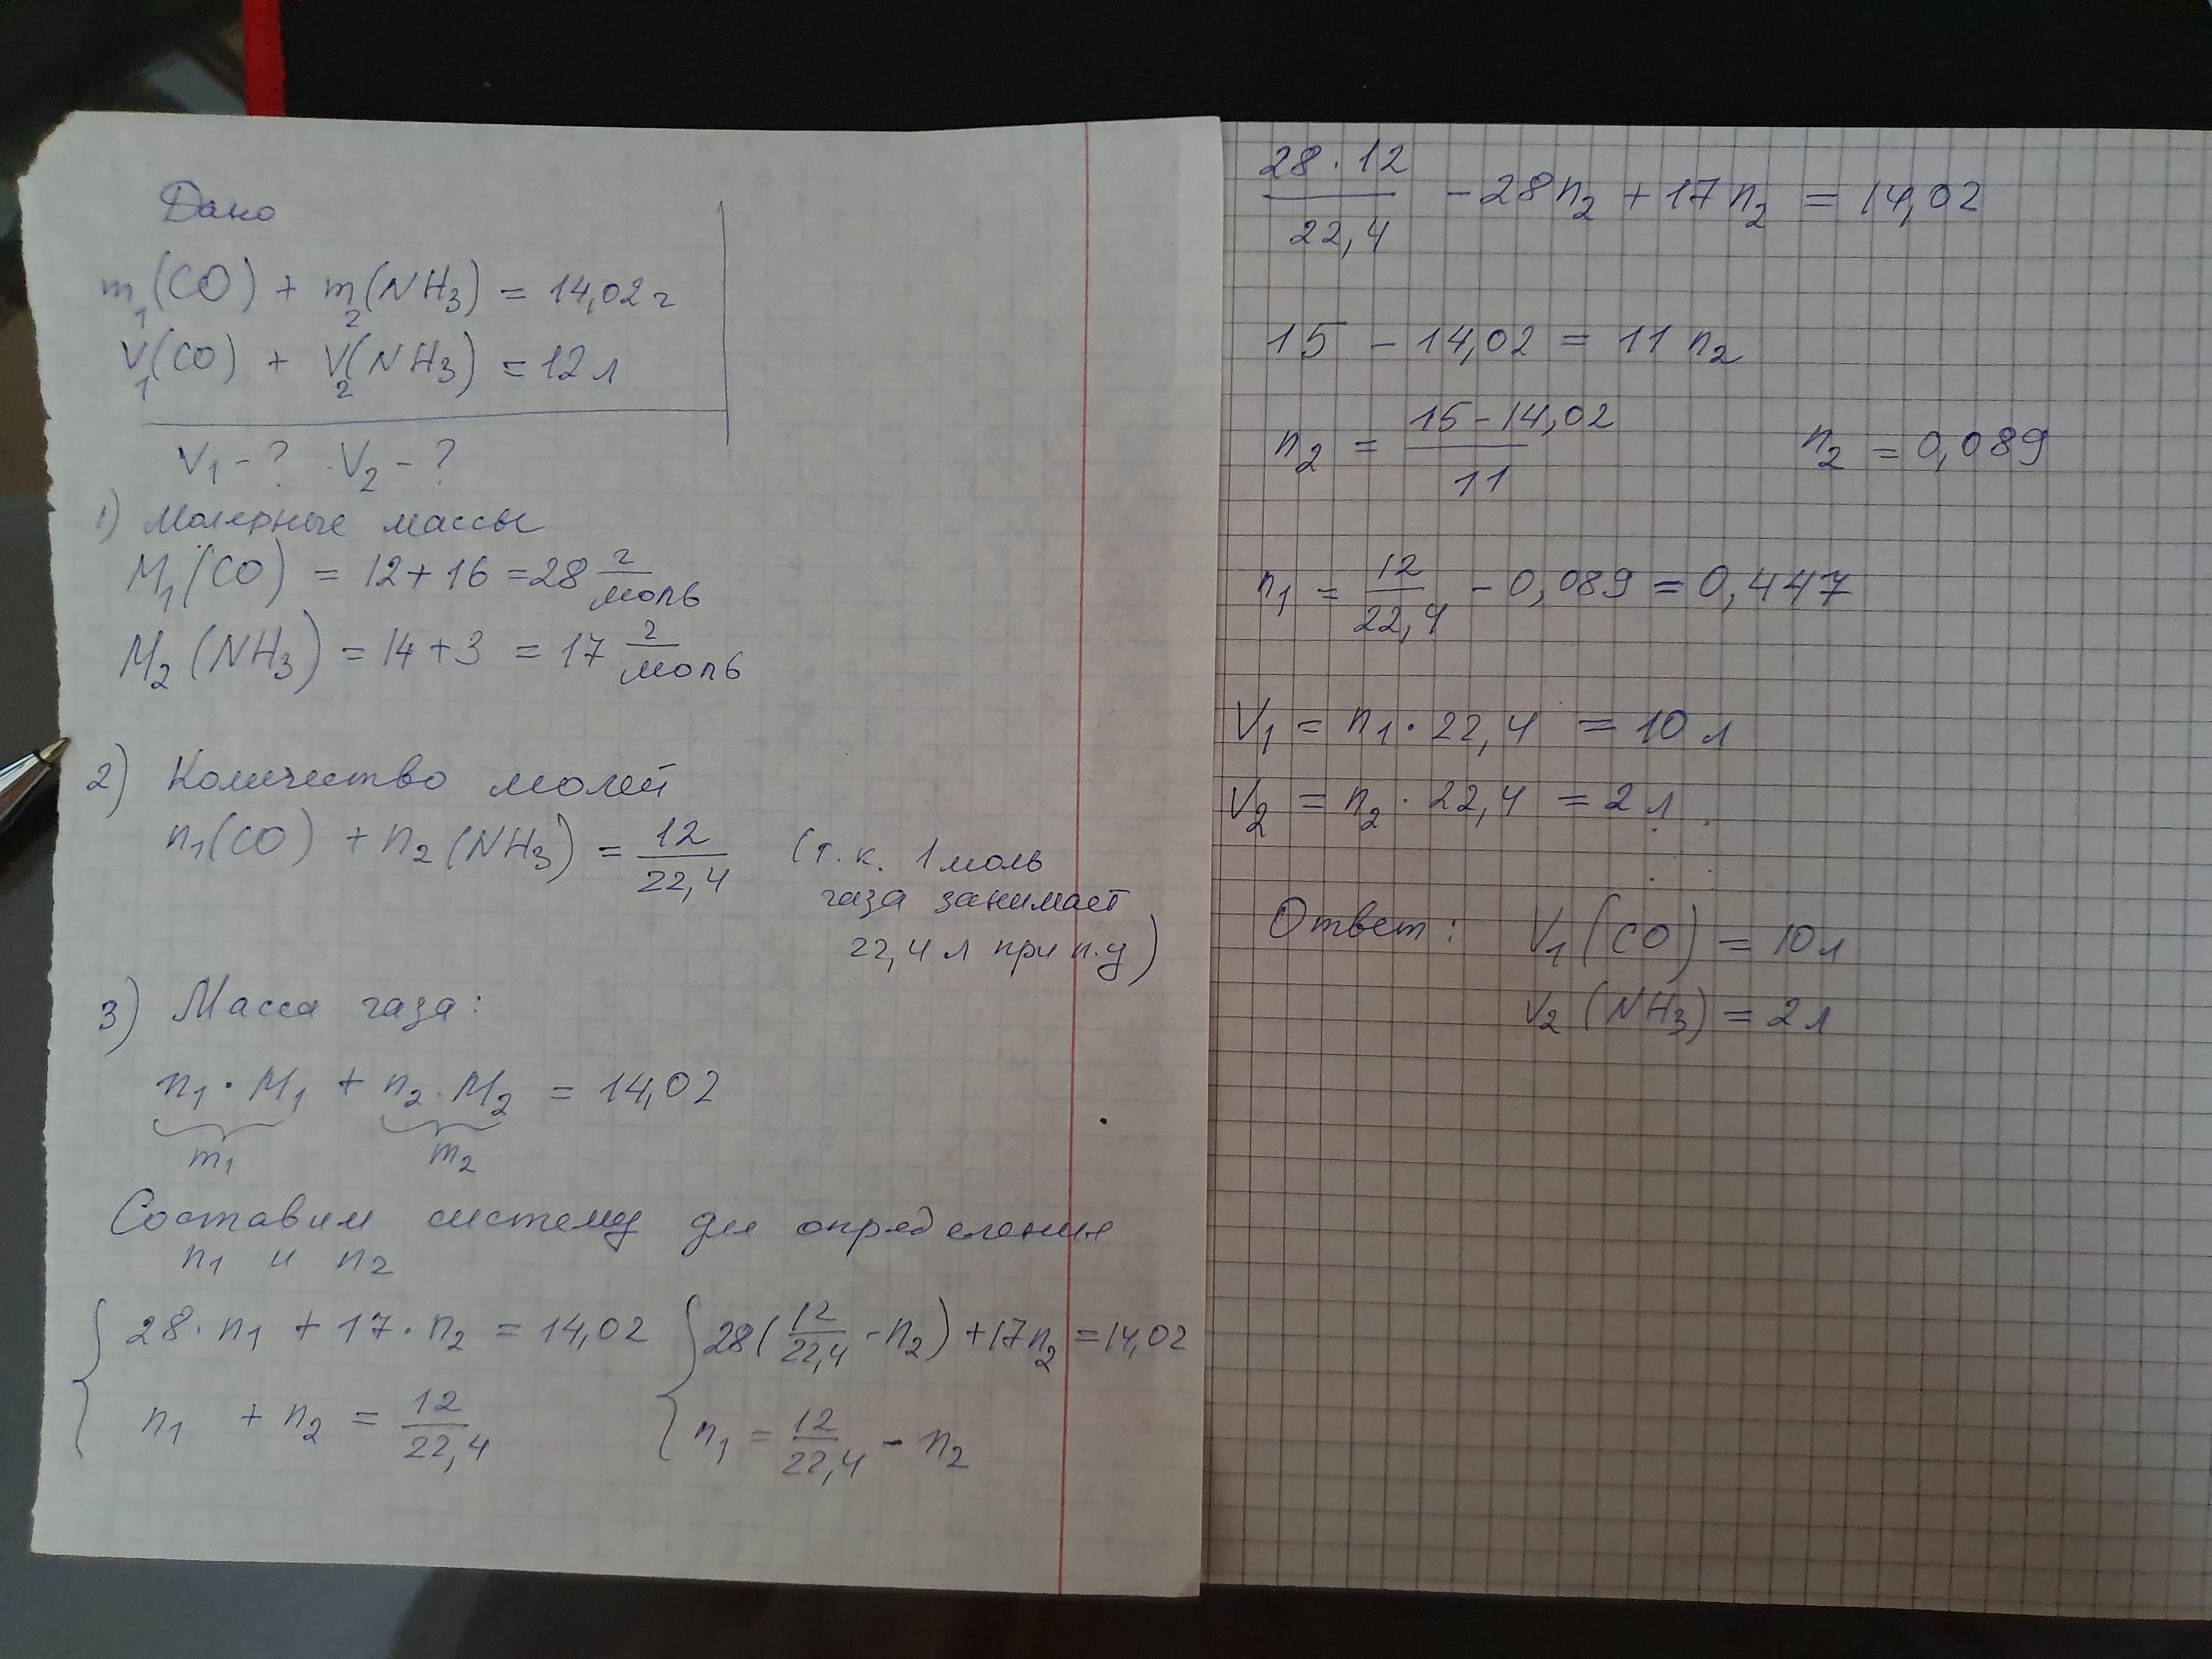 Дано
m₁(CO) + m₂(NH₃) = 14,02 г
V₁(CO) + V₂(NH₃) = 12 л
V₁ - ? V₂ - ?
1) Молярные массы
M₁(CO) = 12 + 16 = 28 г/моль
M₂(NH₃) = 14 + 3 = 17 г/моль
2) Количество молей
n₁(CO) + n₂(NH₃) = 12/22,4 (т.к. 1 моль
газа занимает
22,4 л при н.у)
3) Масса газа:
n₁ · M₁ + n₂ · M₂ = 14,02
m₁ m₂
Составим систему для определения
n₁ и n₂
{ 28 · n₁ + 17 · n₂ = 14,02 { 28(12/22,4 - n₂) + 17n₂ = 14,02
n₁ + n₂ = 12/22,4 n₁ = 12/22,4 - n₂
28 · 12/22,4 - 28n₂ + 17n₂ = 14,02
15 - 14,02 = 11 n₂
n₂ = 15 - 14,02/11 n₂ = 0,089
n₁ = 12/22,4 - 0,089 = 0,447
V₁ = n₁ · 22,4 = 10 л
V₂ = n₂ · 22,4 = 2 л
Ответ: V₁(CO) = 10 л
V₂(NH₃) = 2 л